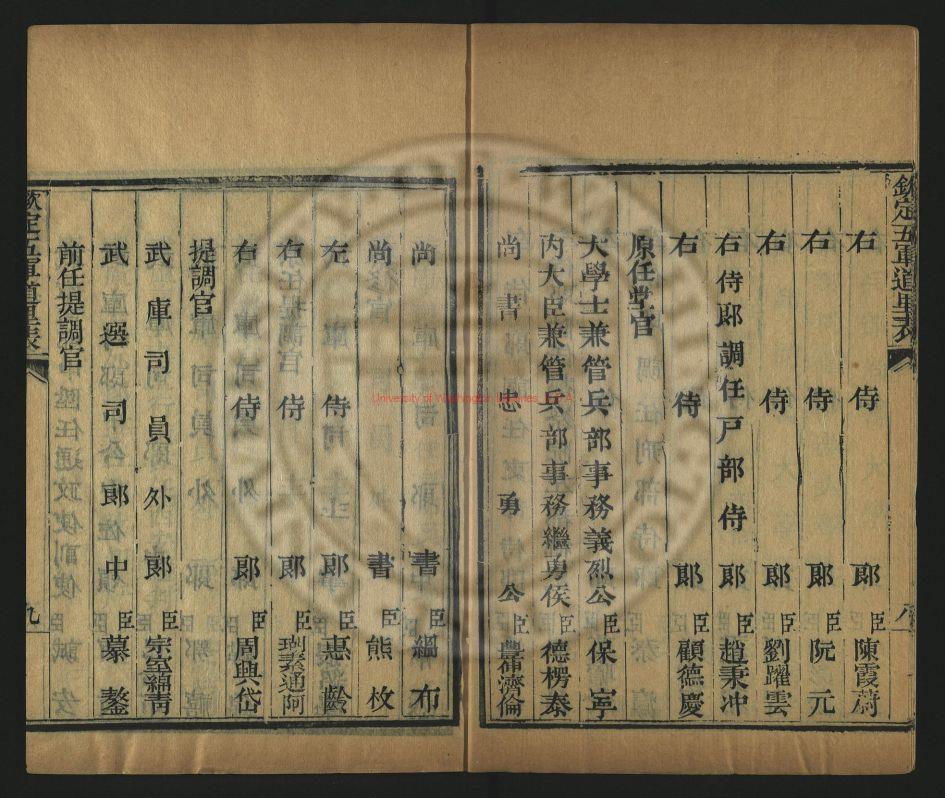 欽定五軍道里表
八
右侍郎臣陳霞蔚
右侍郎臣阮元
右侍郎臣劉躍雲
右侍郎調任戸部侍郎臣趙秉冲
右侍郎臣顧德慶
原任堂官
大學士兼管兵部事務義烈公臣保寧
内大臣兼管兵部事務繼勇侯臣德楞泰
尚書忠勇公臣豐紳濟倫
尚書臣緼布
尚書臣熊枚
左侍郎臣惠齡
右侍郎臣瑚素通阿
右侍郎臣周興岱
提調官
武庫司員外郎臣宗室綿靑
武選司郎中臣慕鏊
前任提調官
欽定五軍道里表
九
University of Washington Libraries